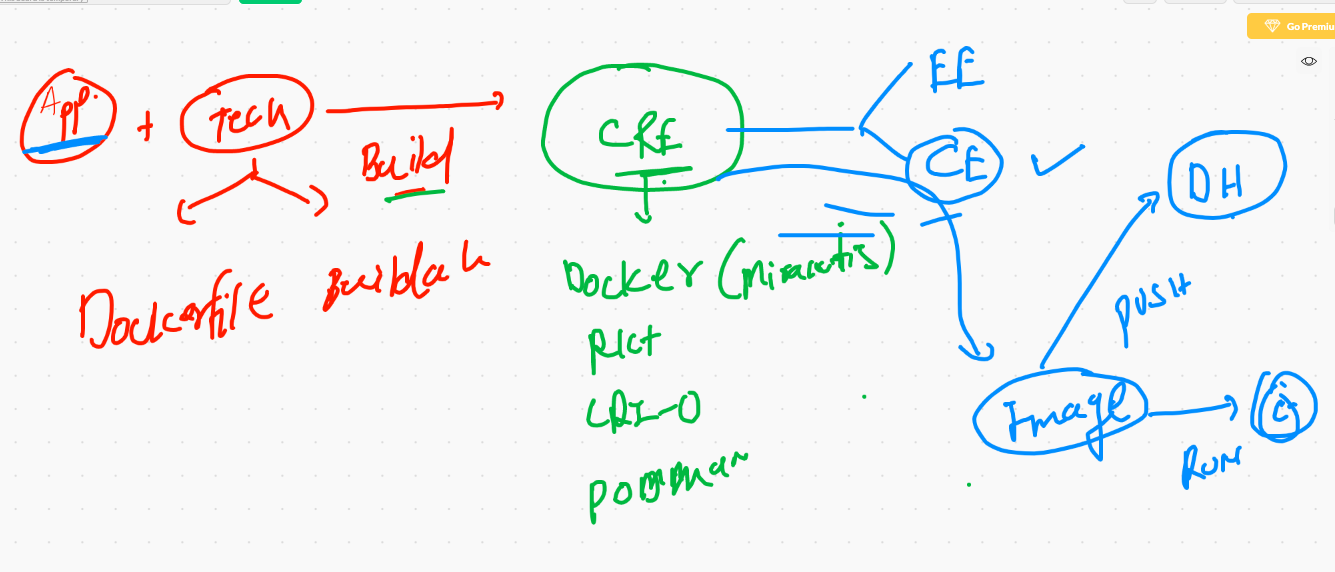 Go Premiu
App.
+
Tech
Build
Dockerfile
Buildah
CRE
Docker (Mirantis)
RKT
CRI-O
PODMAN
EE
CE
DH
PUSH
Image
RUN
C